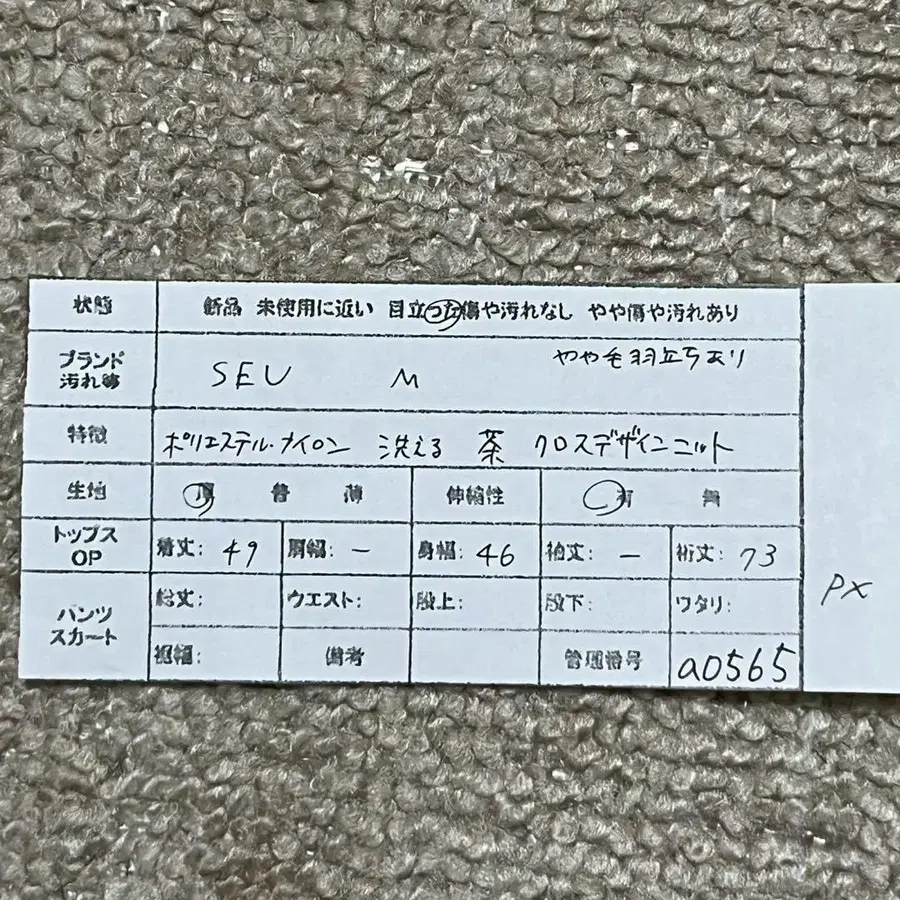 状態 新品 未使用に近い 目立った傷や汚れなし やや傷や汚れあり
ブランド 汚れ等 SEU M やや毛羽立ちあり
特徴 ポリエステル・ナイロン 洗える 茶 クロスデザインニット
生地 厚 普 薄 伸縮性 有 無
トップス OP 着丈: 49 肩幅: - 身幅: 46 袖丈: - 裄丈: 73
パンツ スカート 総丈: ウエスト: 股上: 股下: ワタリ:
裾幅: 備考 管理番号 a0565
PX